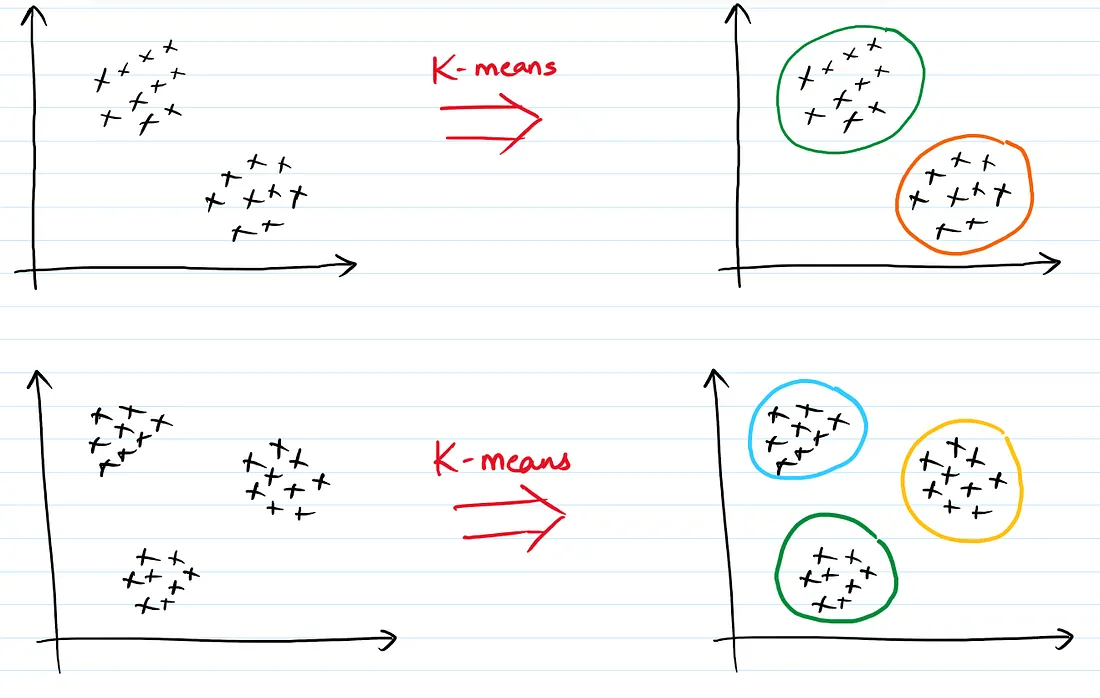 K-means
K-means